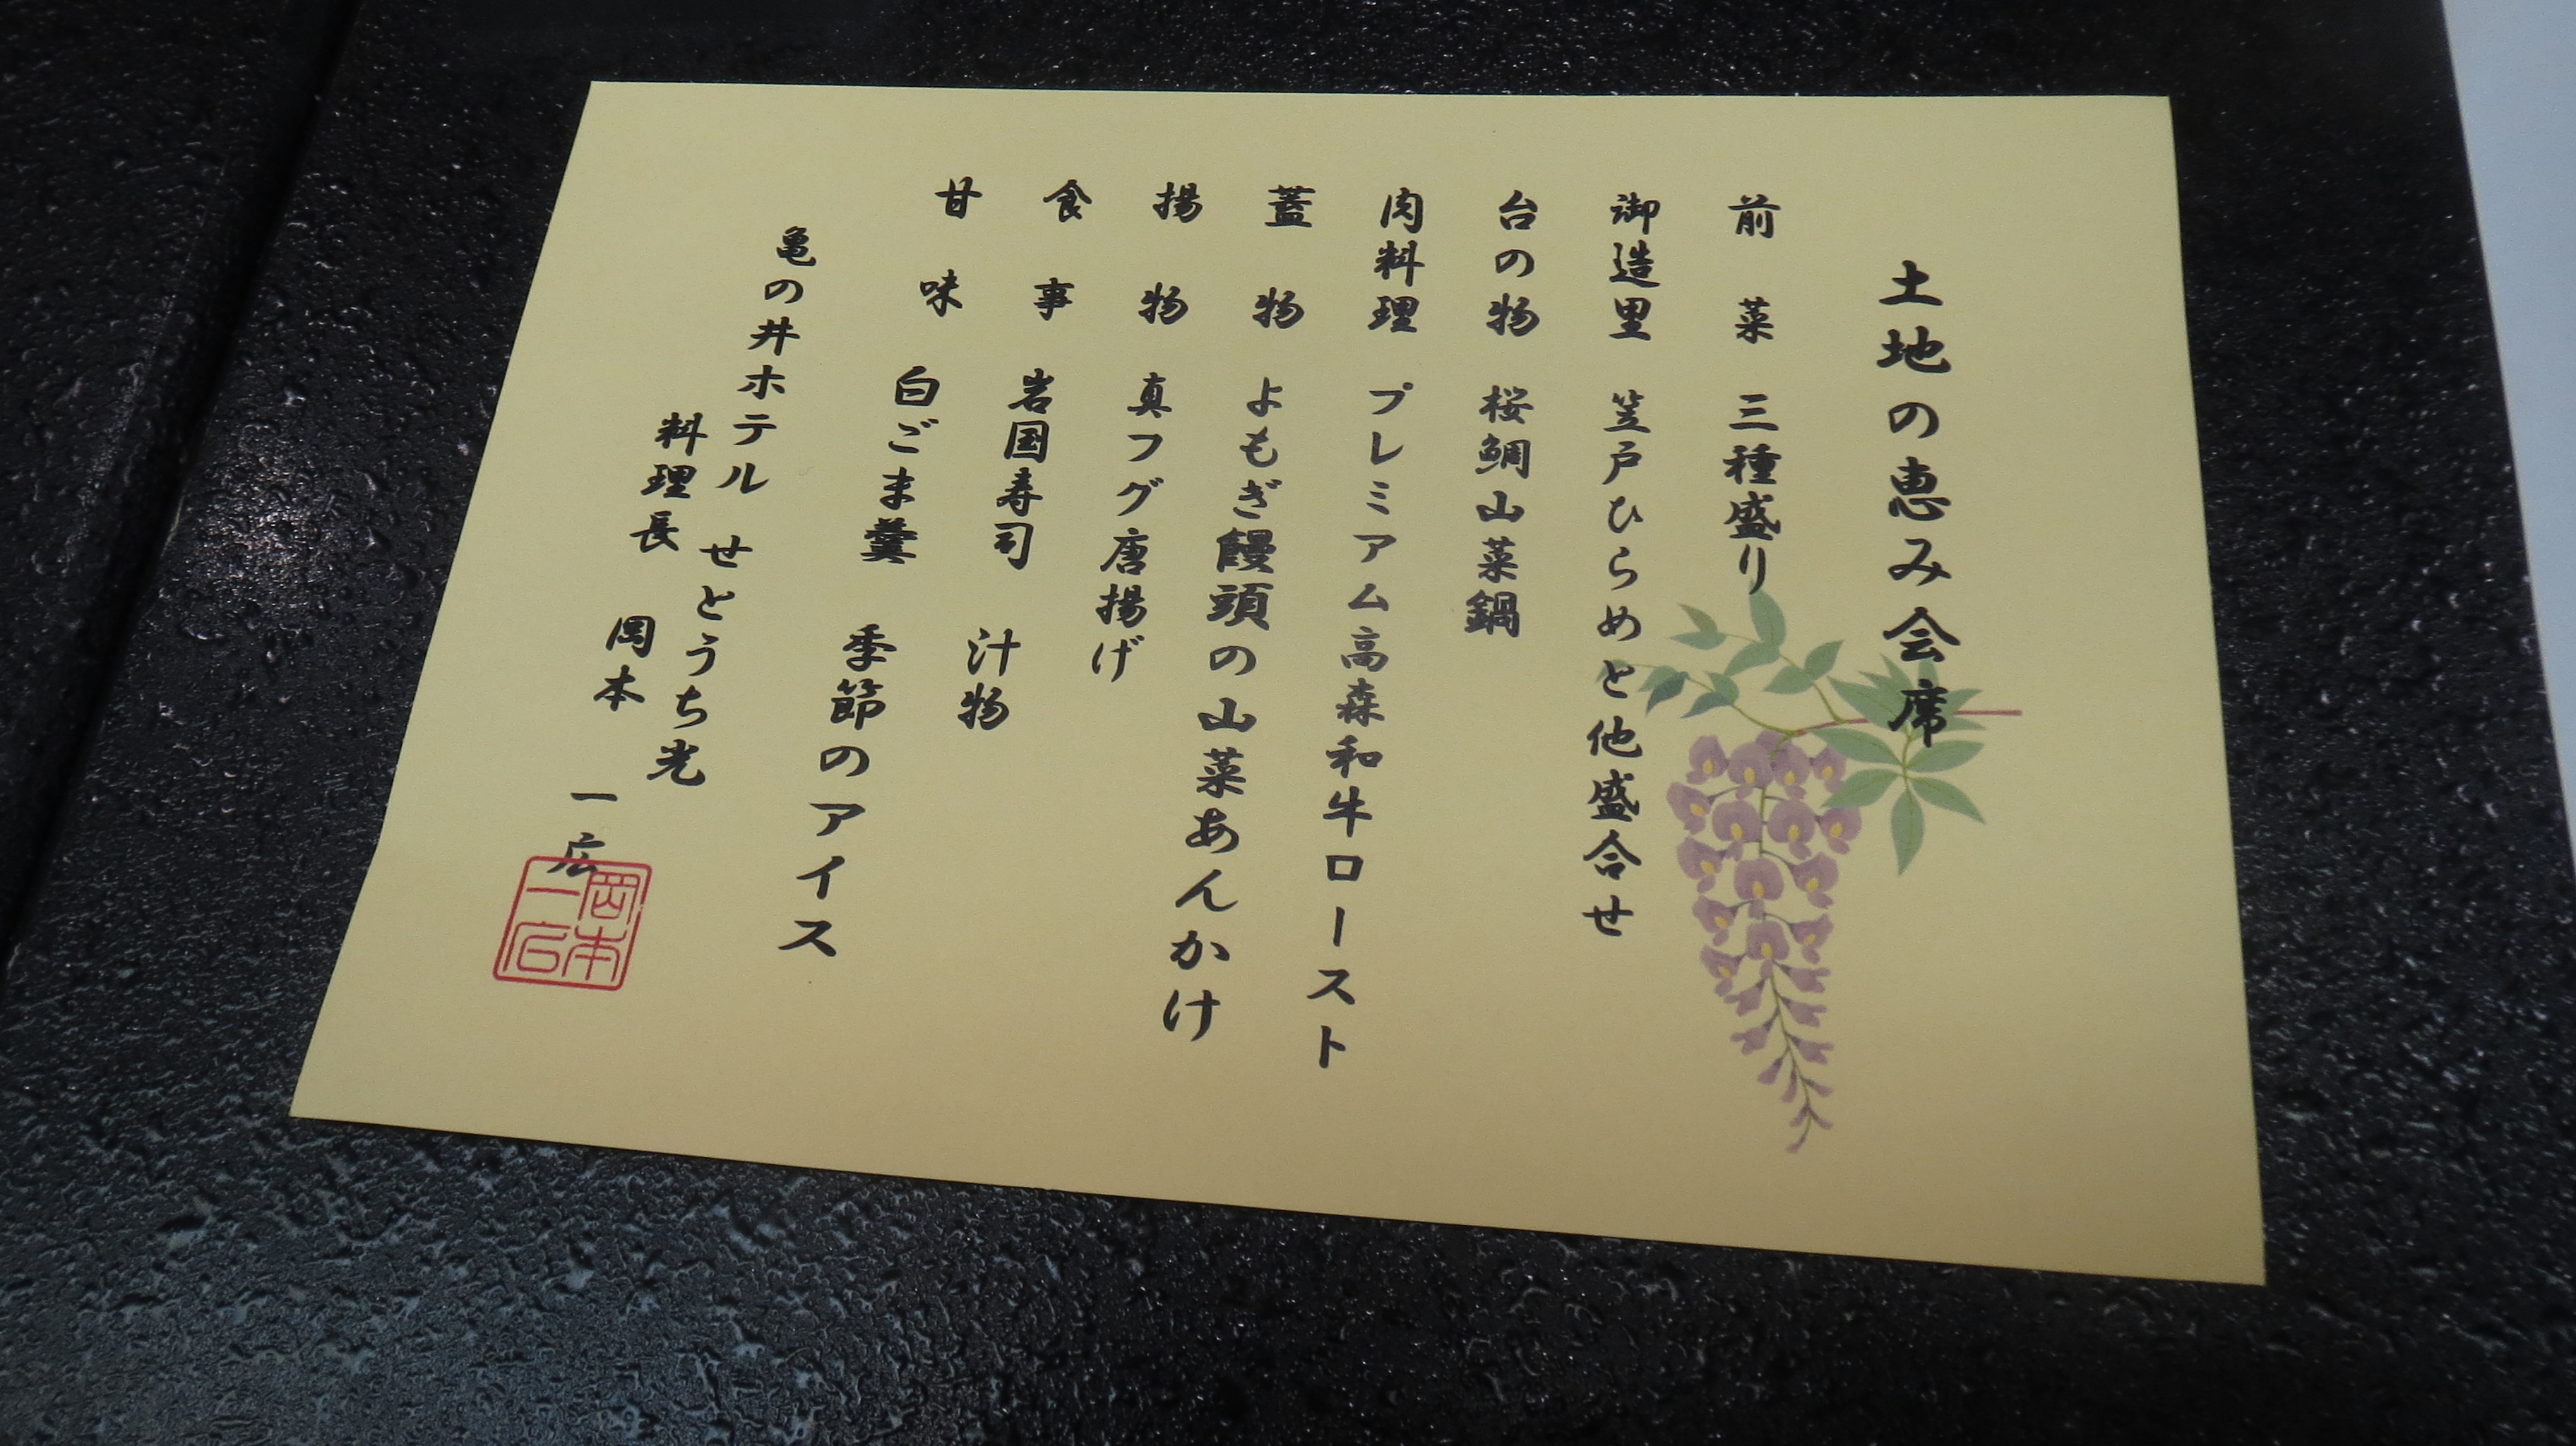 土地の恵み会席
前菜 三種盛り
御造里 笠戸ひらめと他盛合せ
台の物 桜鯛山菜鍋
肉料理 プレミアム高森和牛ロースト
蓋物 よもぎ饅頭の山菜あんかけ
揚物 真フグ唐揚げ
食事 岩国寿司 汁物
甘味 白ごま羹 季節のアイス
亀の井ホテル せとうち光
料理長 岡本 一広
岡本
一広